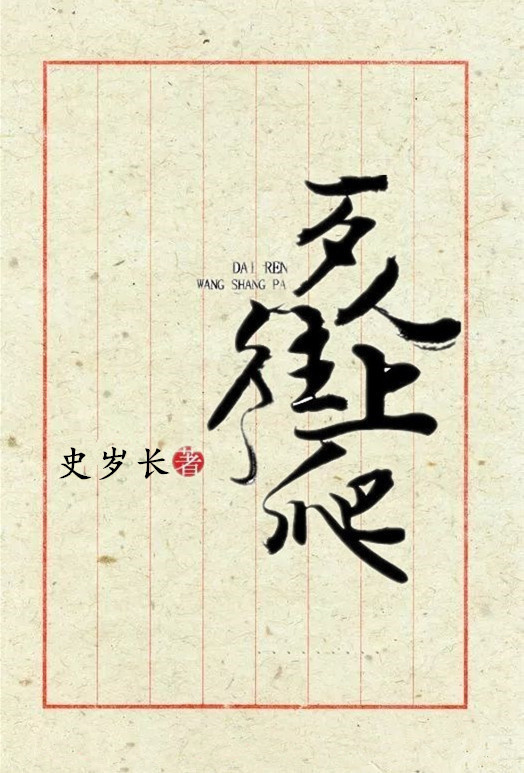 歹人
往上
爬
DAI REN
WANG SHANG PA
史岁长 著